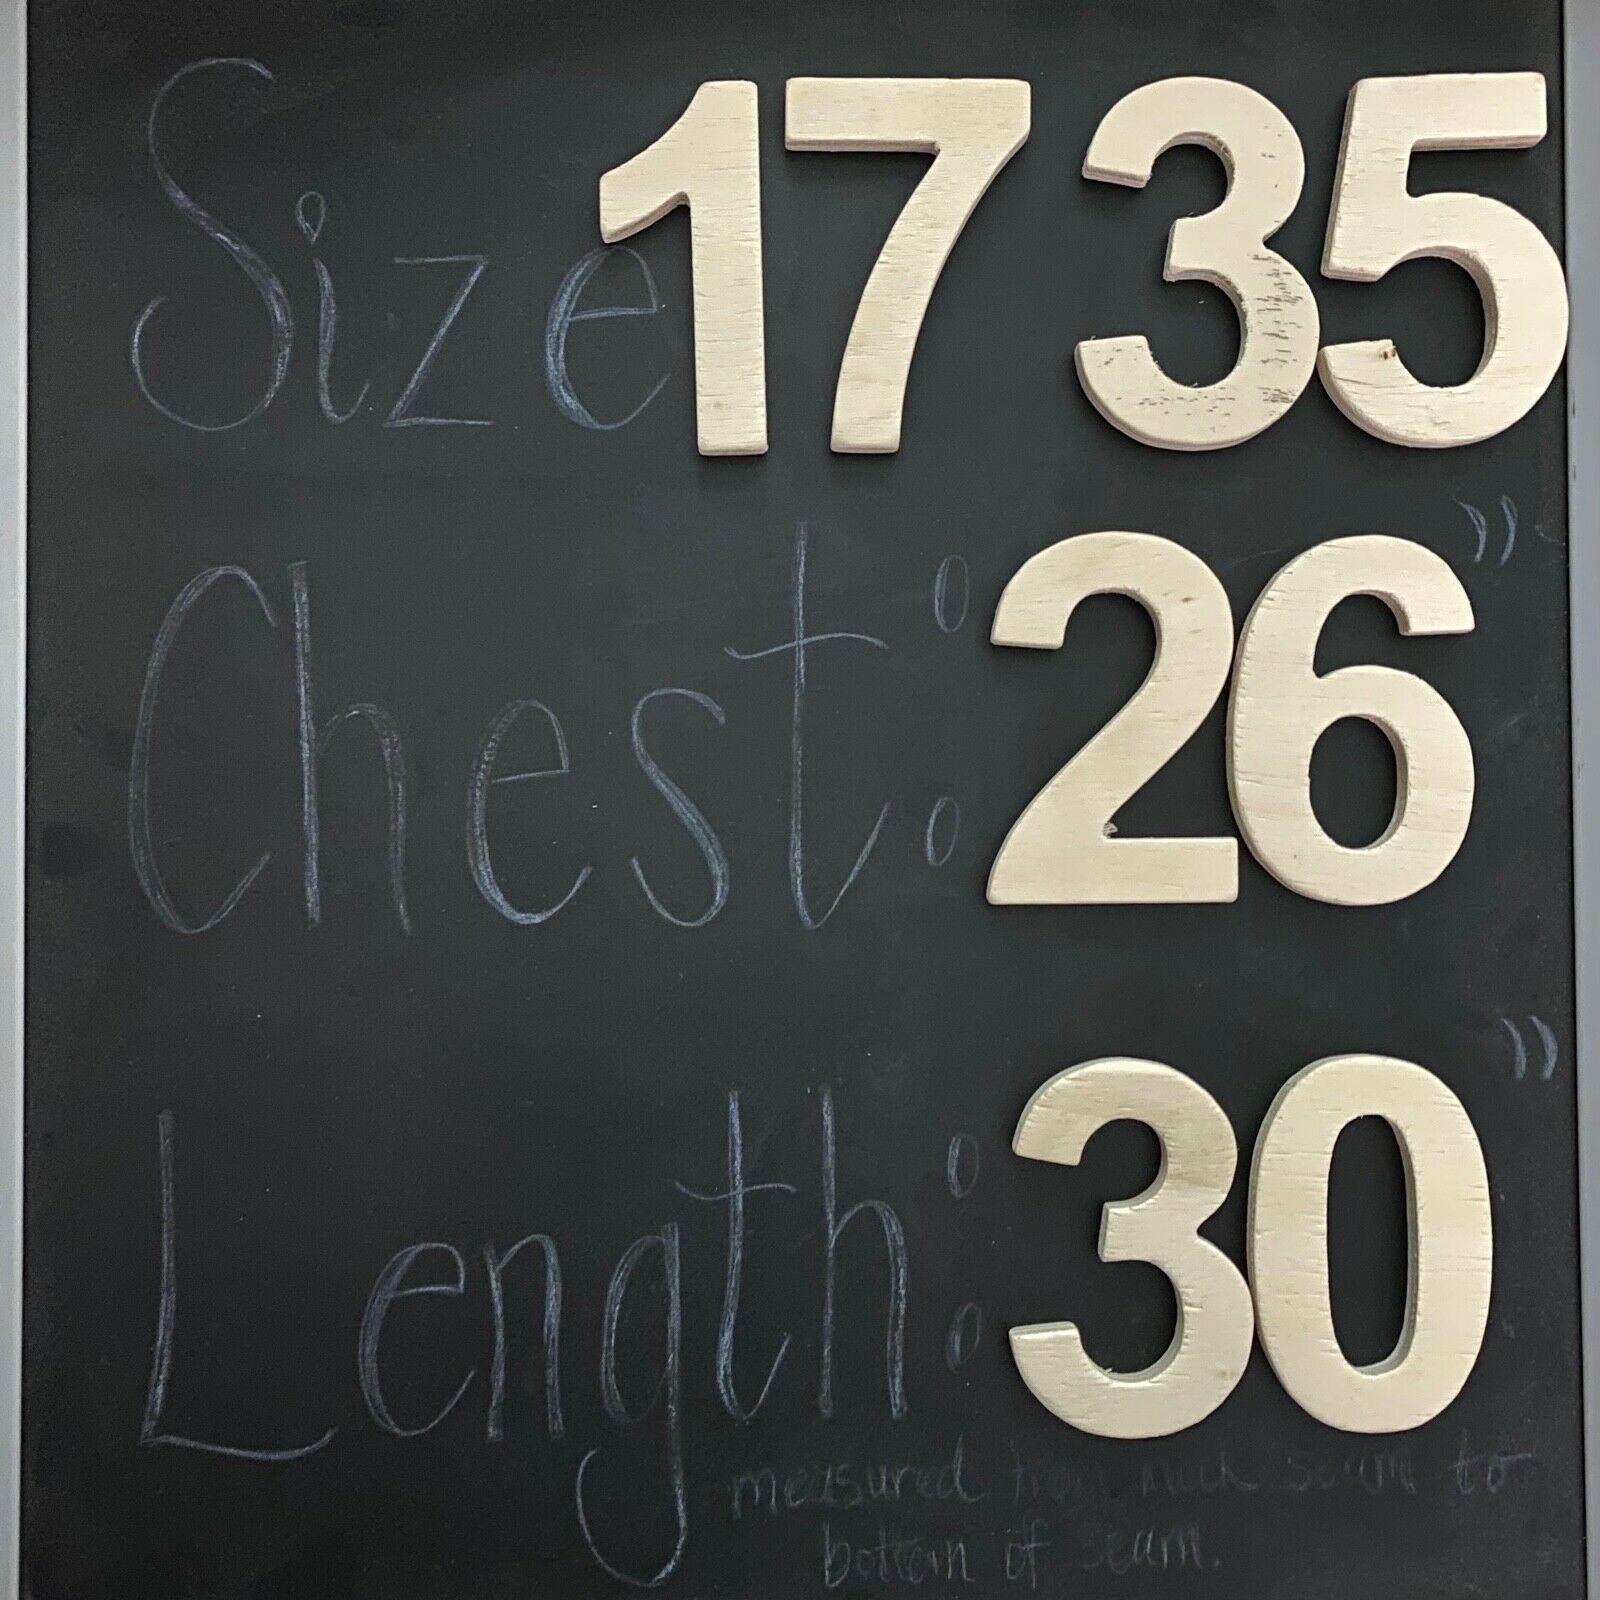 Size 17 35
Chest: 26"
Length: 30"
measured from neck seam to
bottom of seam.